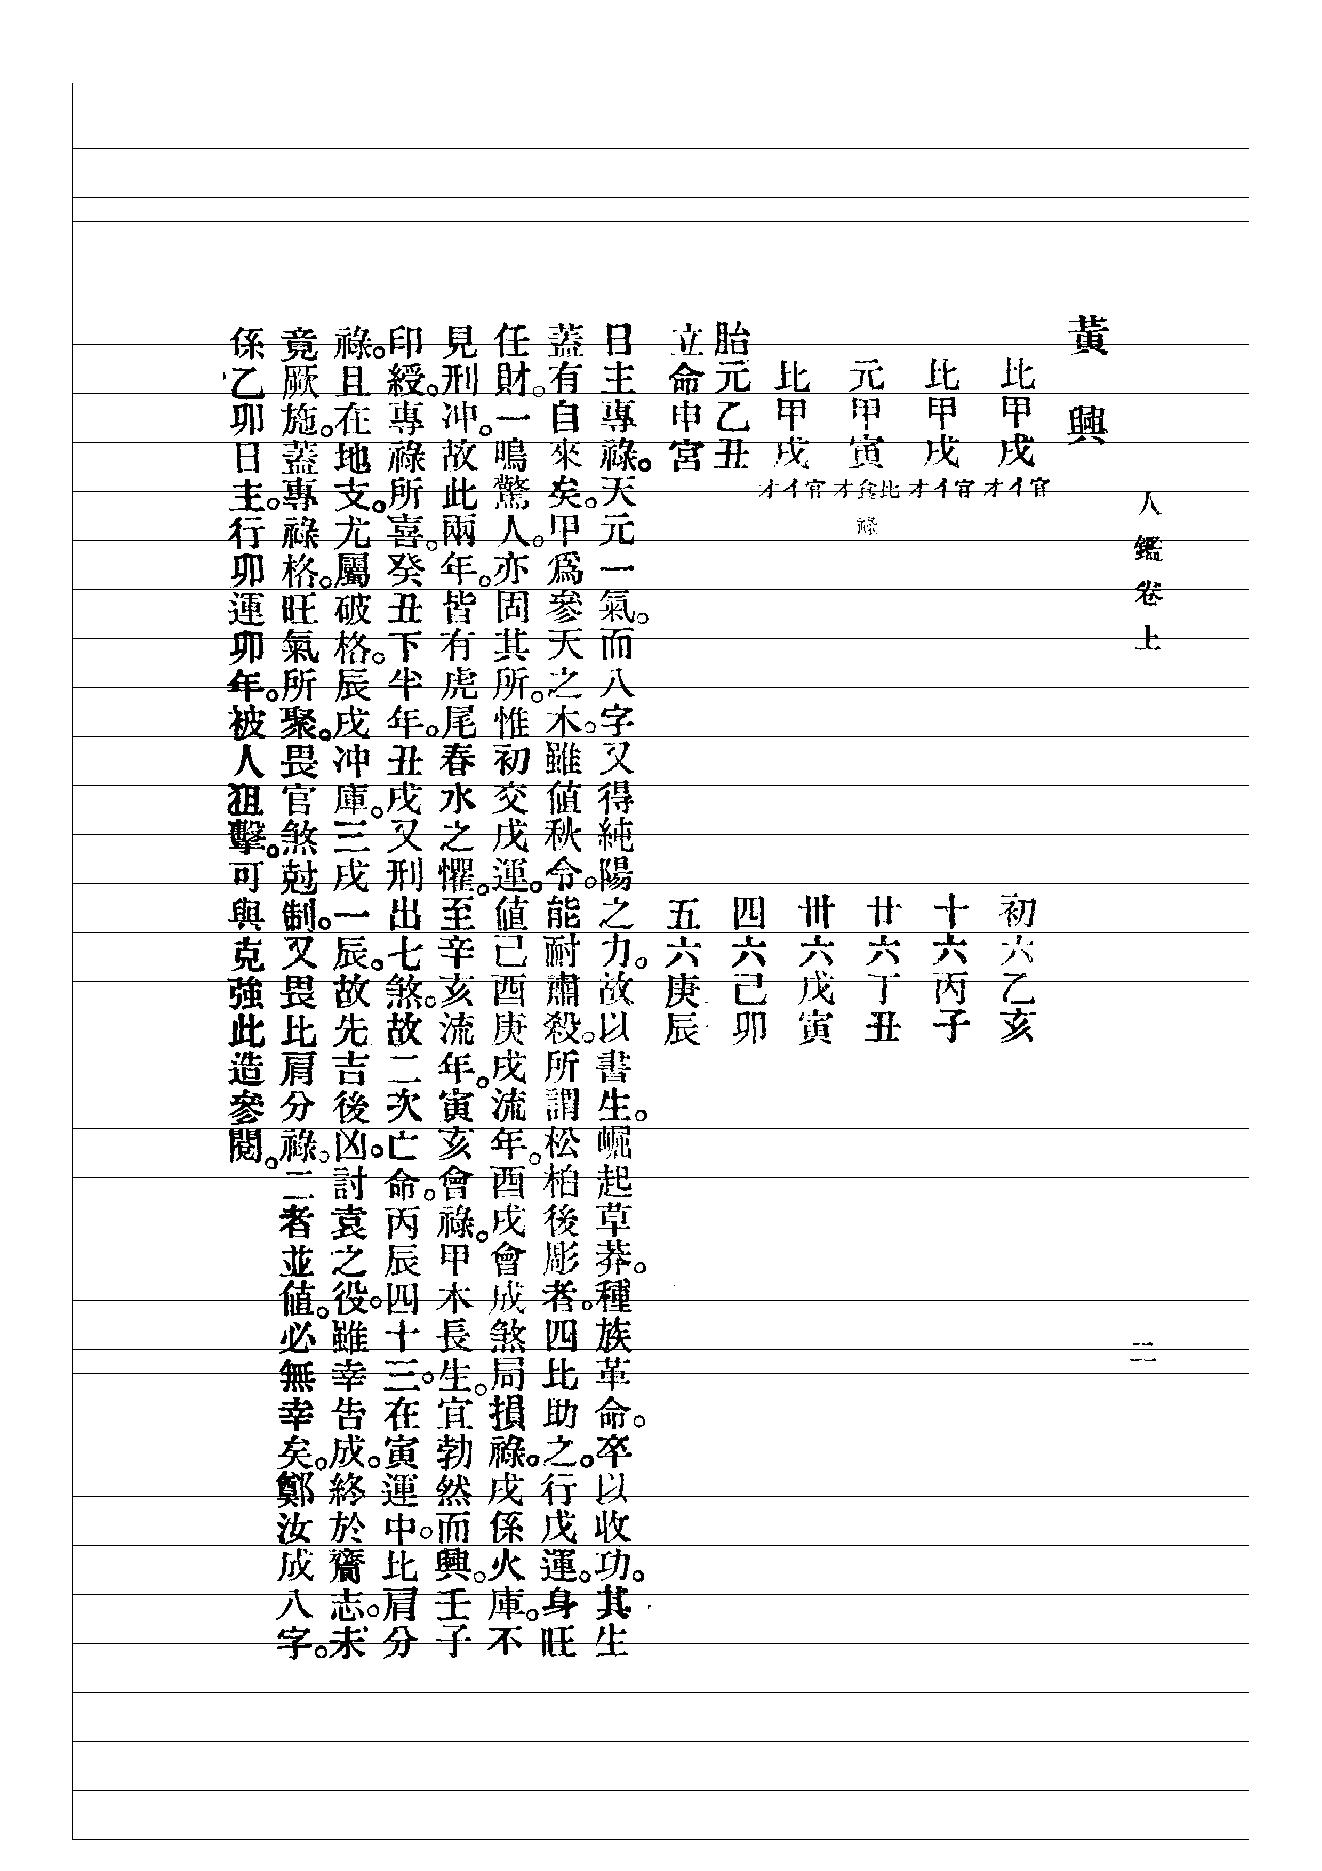 八鑑卷上
二
黃興
比甲戌 官イオ
比甲戌 官イオ
元甲寅 比食オ 祿
比甲戌 官イオ
胎元乙丑
立命申宮
初六乙亥
十六丙子
廿六丁丑
卅六戊寅
四六己卯
五六庚辰
日主專祿。天元一氣。而八字又得純陽之力。故以書生。崛起草莽。種族革命。卒以收功。其生
蓋有自來矣。甲爲參天之木。雖値秋令。能耐肅殺。所謂松柏後彫者。四比助之。行戊運。身旺
任財。一鳴驚人。亦固其所。惟初交戊運。値己酉庚戌流年。酉戌會成煞局損祿。戌係火庫。不
見刑冲。故此兩年。皆有虎尾春水之懼。至辛亥流年。寅亥會祿。甲木長生。宜勃然而興。壬子
印綬。專祿所喜。癸丑下半年。丑戌又刑出七煞。故二次亡命。丙辰四十三。在寅運中。比肩分
祿。且在地支。尤屬破格。辰戌冲庫。三戌一辰。故先吉後凶。討袁之役。雖幸告成。終於齎志。未
竟厥施。蓋專祿格。旺氣所聚。畏官煞尅制。又畏比肩分祿。二者並値。必無幸矣。鄭汝成八字。
係乙卯日主。行卯運卯年。被人狙擊。可與克強此造參閱。